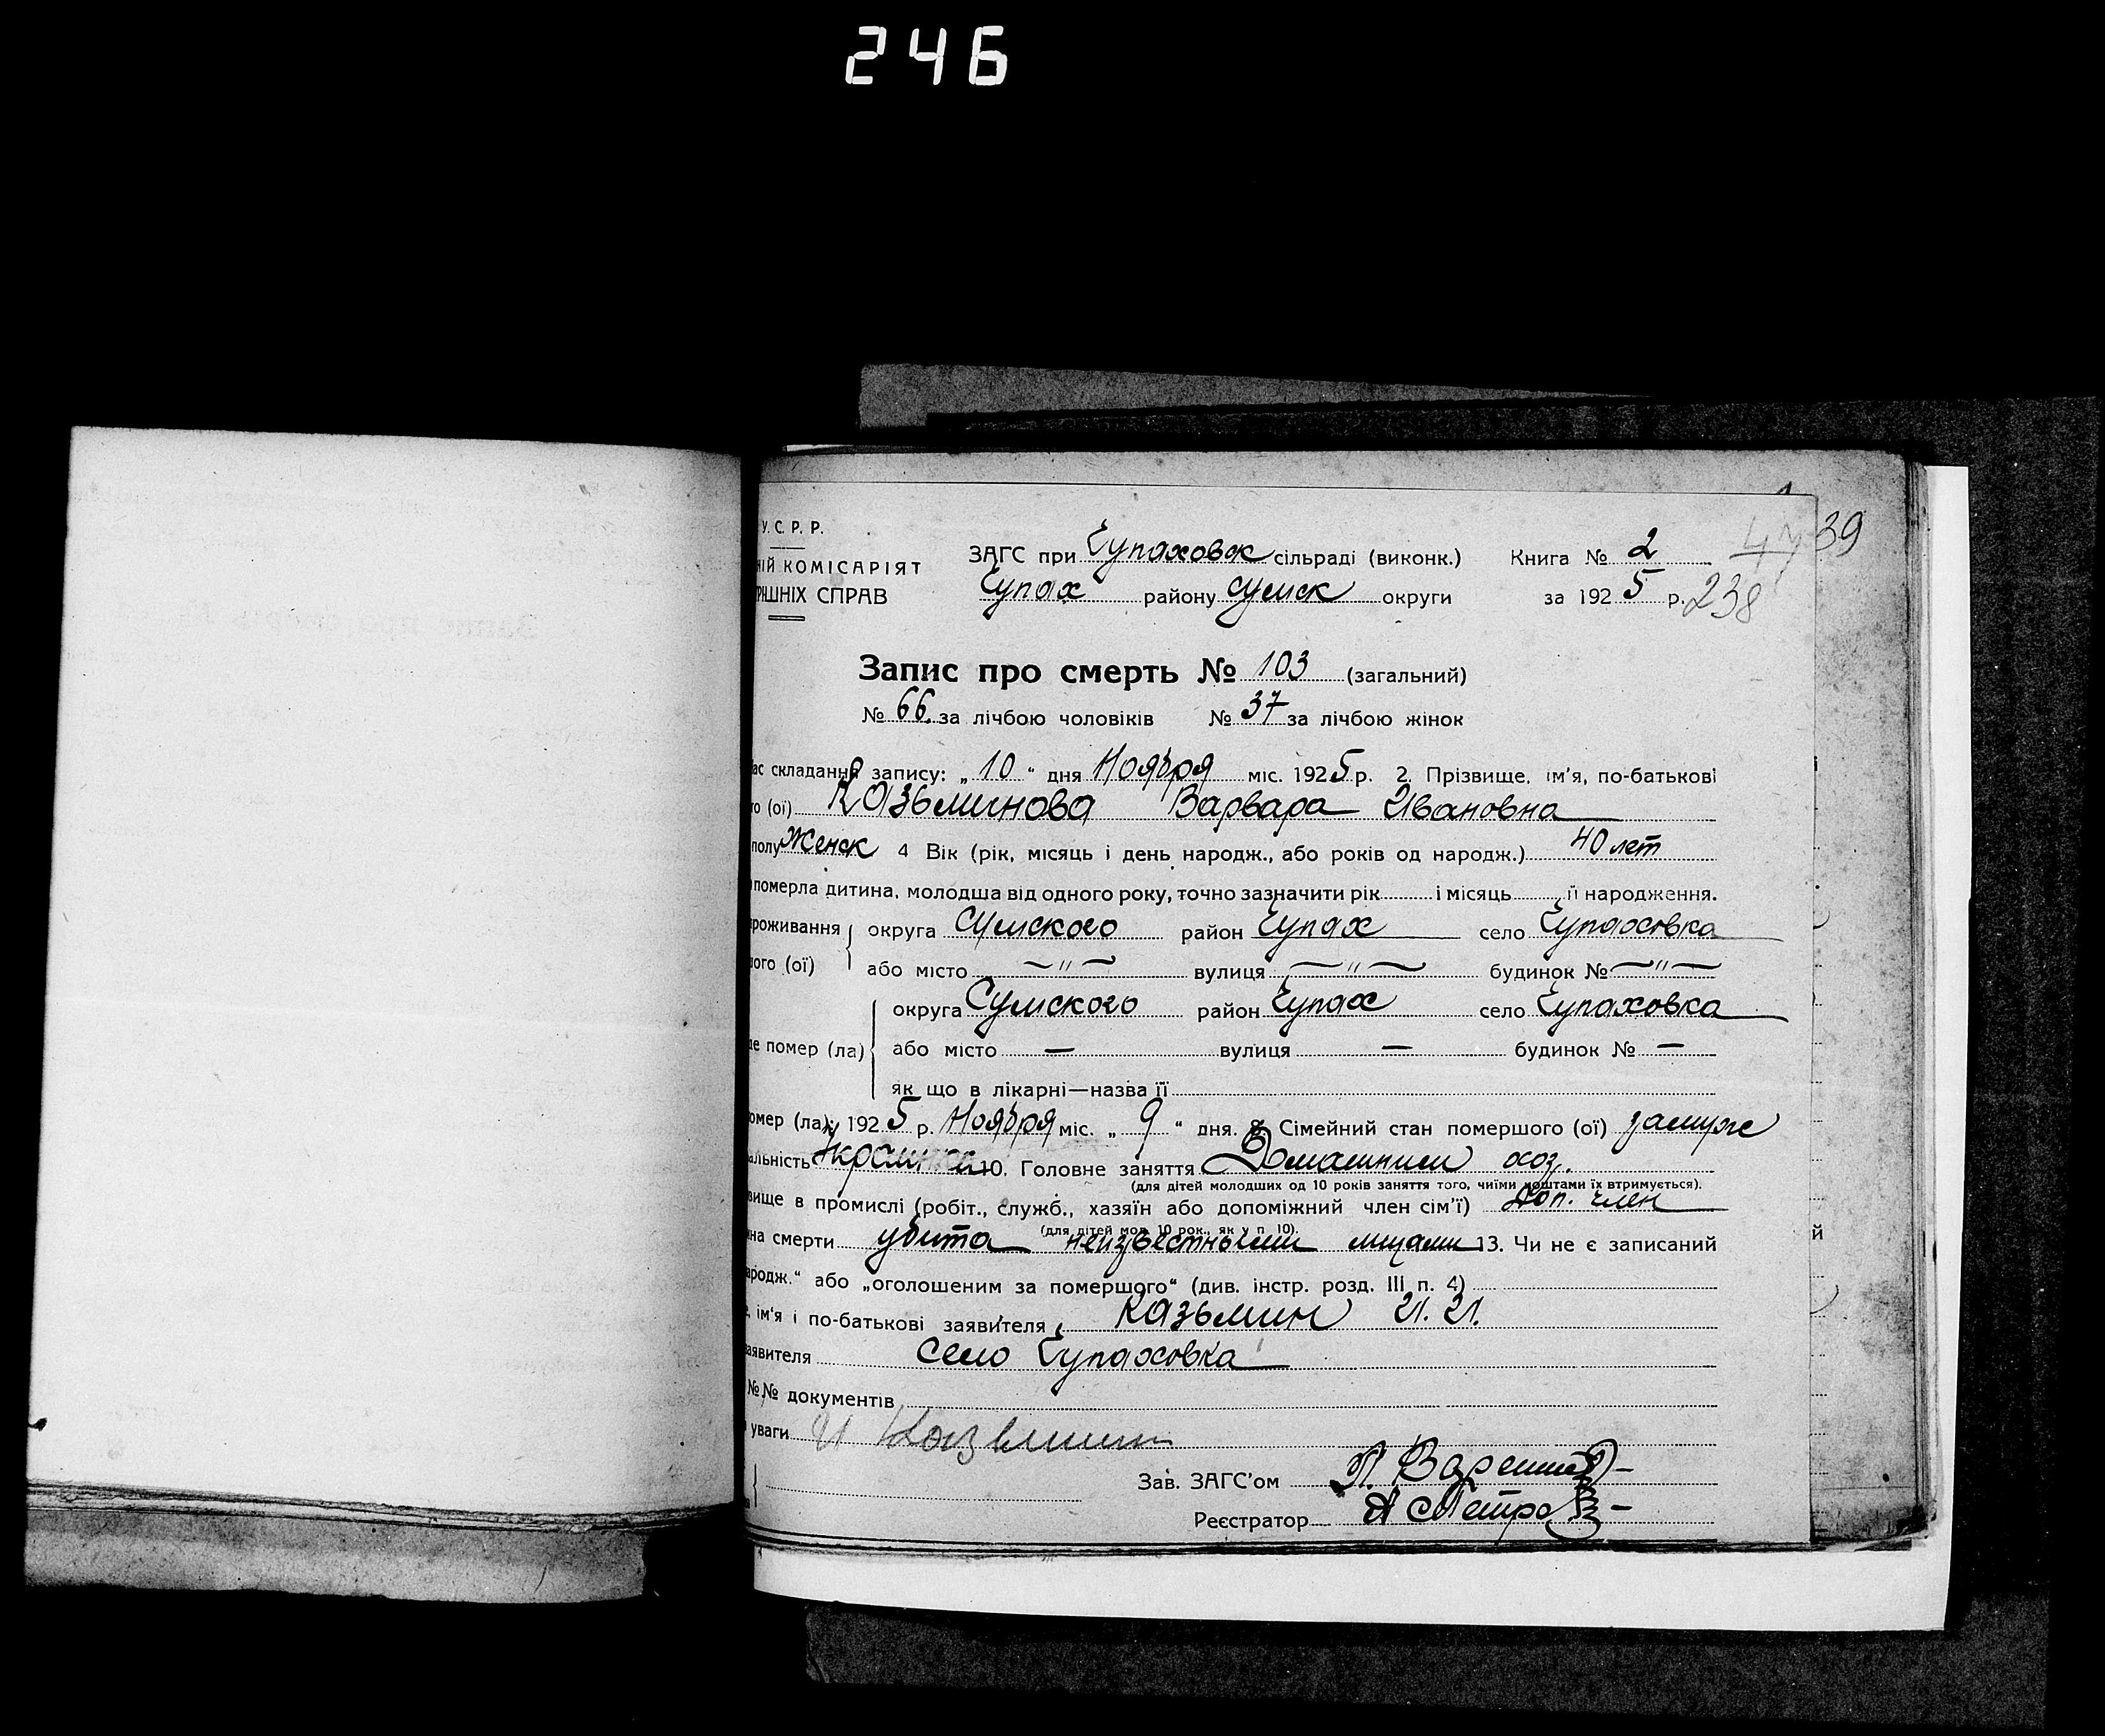 246
У. С. Р. Р.
НІЙ КОМІСАРІЯТ
РІШНІХ СПРАВ
ЗАГС при Чупаховск сільраді (виконк.)
Чупах району Сумск округи
Книга № 2
за 1925 р.
47 39
238
Запис про смерть № 103 (загальний)
№ 66. за лічбою чоловіків № 37 за лічбою жінок
ас складання запису: „ 10 “ дня Ноября міс. 1925 р. 2. Прізвище, ім'я, по-батькові
го (ої) Казьминова Варвара Ивановна
полу Женск 4 Вік (рік, місяць і день народж., або років од народж.) 40 лет
померла дитина, молодша від одного року, точно зазначити рік і місяць її народження.
роживання округа Сумского район Чупах село Чупаховка
ого (ої) або місто —"— вулиця —"— будинок № —"—
округа Сумского район Чупах село Чупаховка
де помер (ла) або місто — вулиця — будинок № —
як що в лікарні—назва її
омер (ла): 1925 р. Ноября міс. „ 9 “ дня. 8. Сімейний стан помершого (ої) замуже
альність Украинка 10. Головне заняття Домашним хоз.
(для дітей молодших од 10 років заняття того, чиїми коштами їх втримується).
вище в промислі (робіт., служб., хазяїн або допоміжний член сім'ї) Доп. член
(для дітей мол. 10 рок., як у п. 10).
на смерти убита неизвестными лицами 13. Чи не є записаний
ародж.“ або „оголошеним за помершого“ (див. інстр. розд. III п. 4)
е, ім'я і по-батькові заявителя Казьмин И. И.
аявителя Село Чупаховка
№№ документів
уваги И Казьмин
Зав. ЗАГС'ом П.
Реєстратор